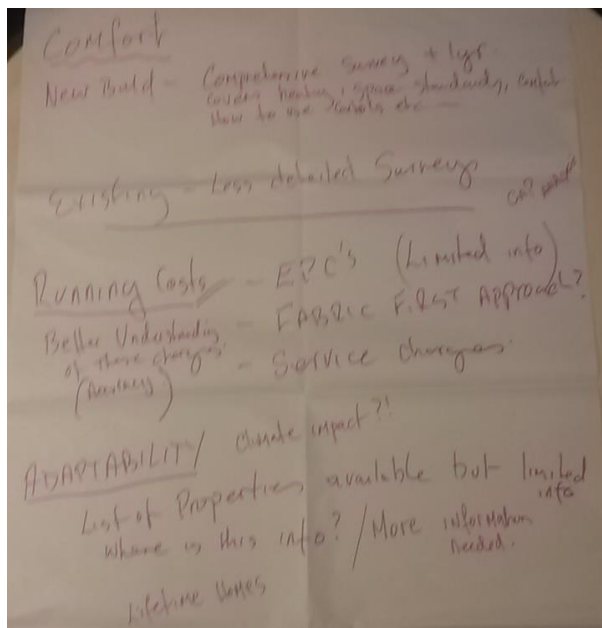 Comfort
New Build - Comprehensive Survey + 1yr.
covers heating, space standards, controls
How to use controls etc -
Existing - Less detailed Surveys
Running Costs - EPC's (Limited info)
Better Understanding - FABRIC FIRST APPROACH?
of these charges. - Service charges.
(Accuracy)
ADAPTABILITY / Climate impact?!
List of Properties available but limited
info
Where is this info? / More information
needed.
Lifetime Homes